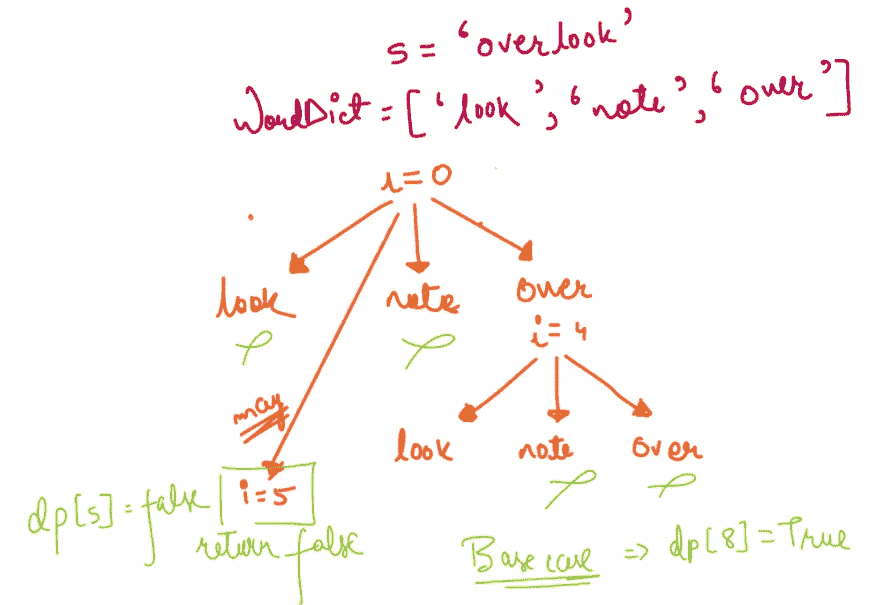 s = 'overlook'
WordDict = ['look', 'note', 'over']
i = 0
look note over
i = 4
may
look note over
i = 5
dp[5] = false
return false
Base case => dp[8] = True